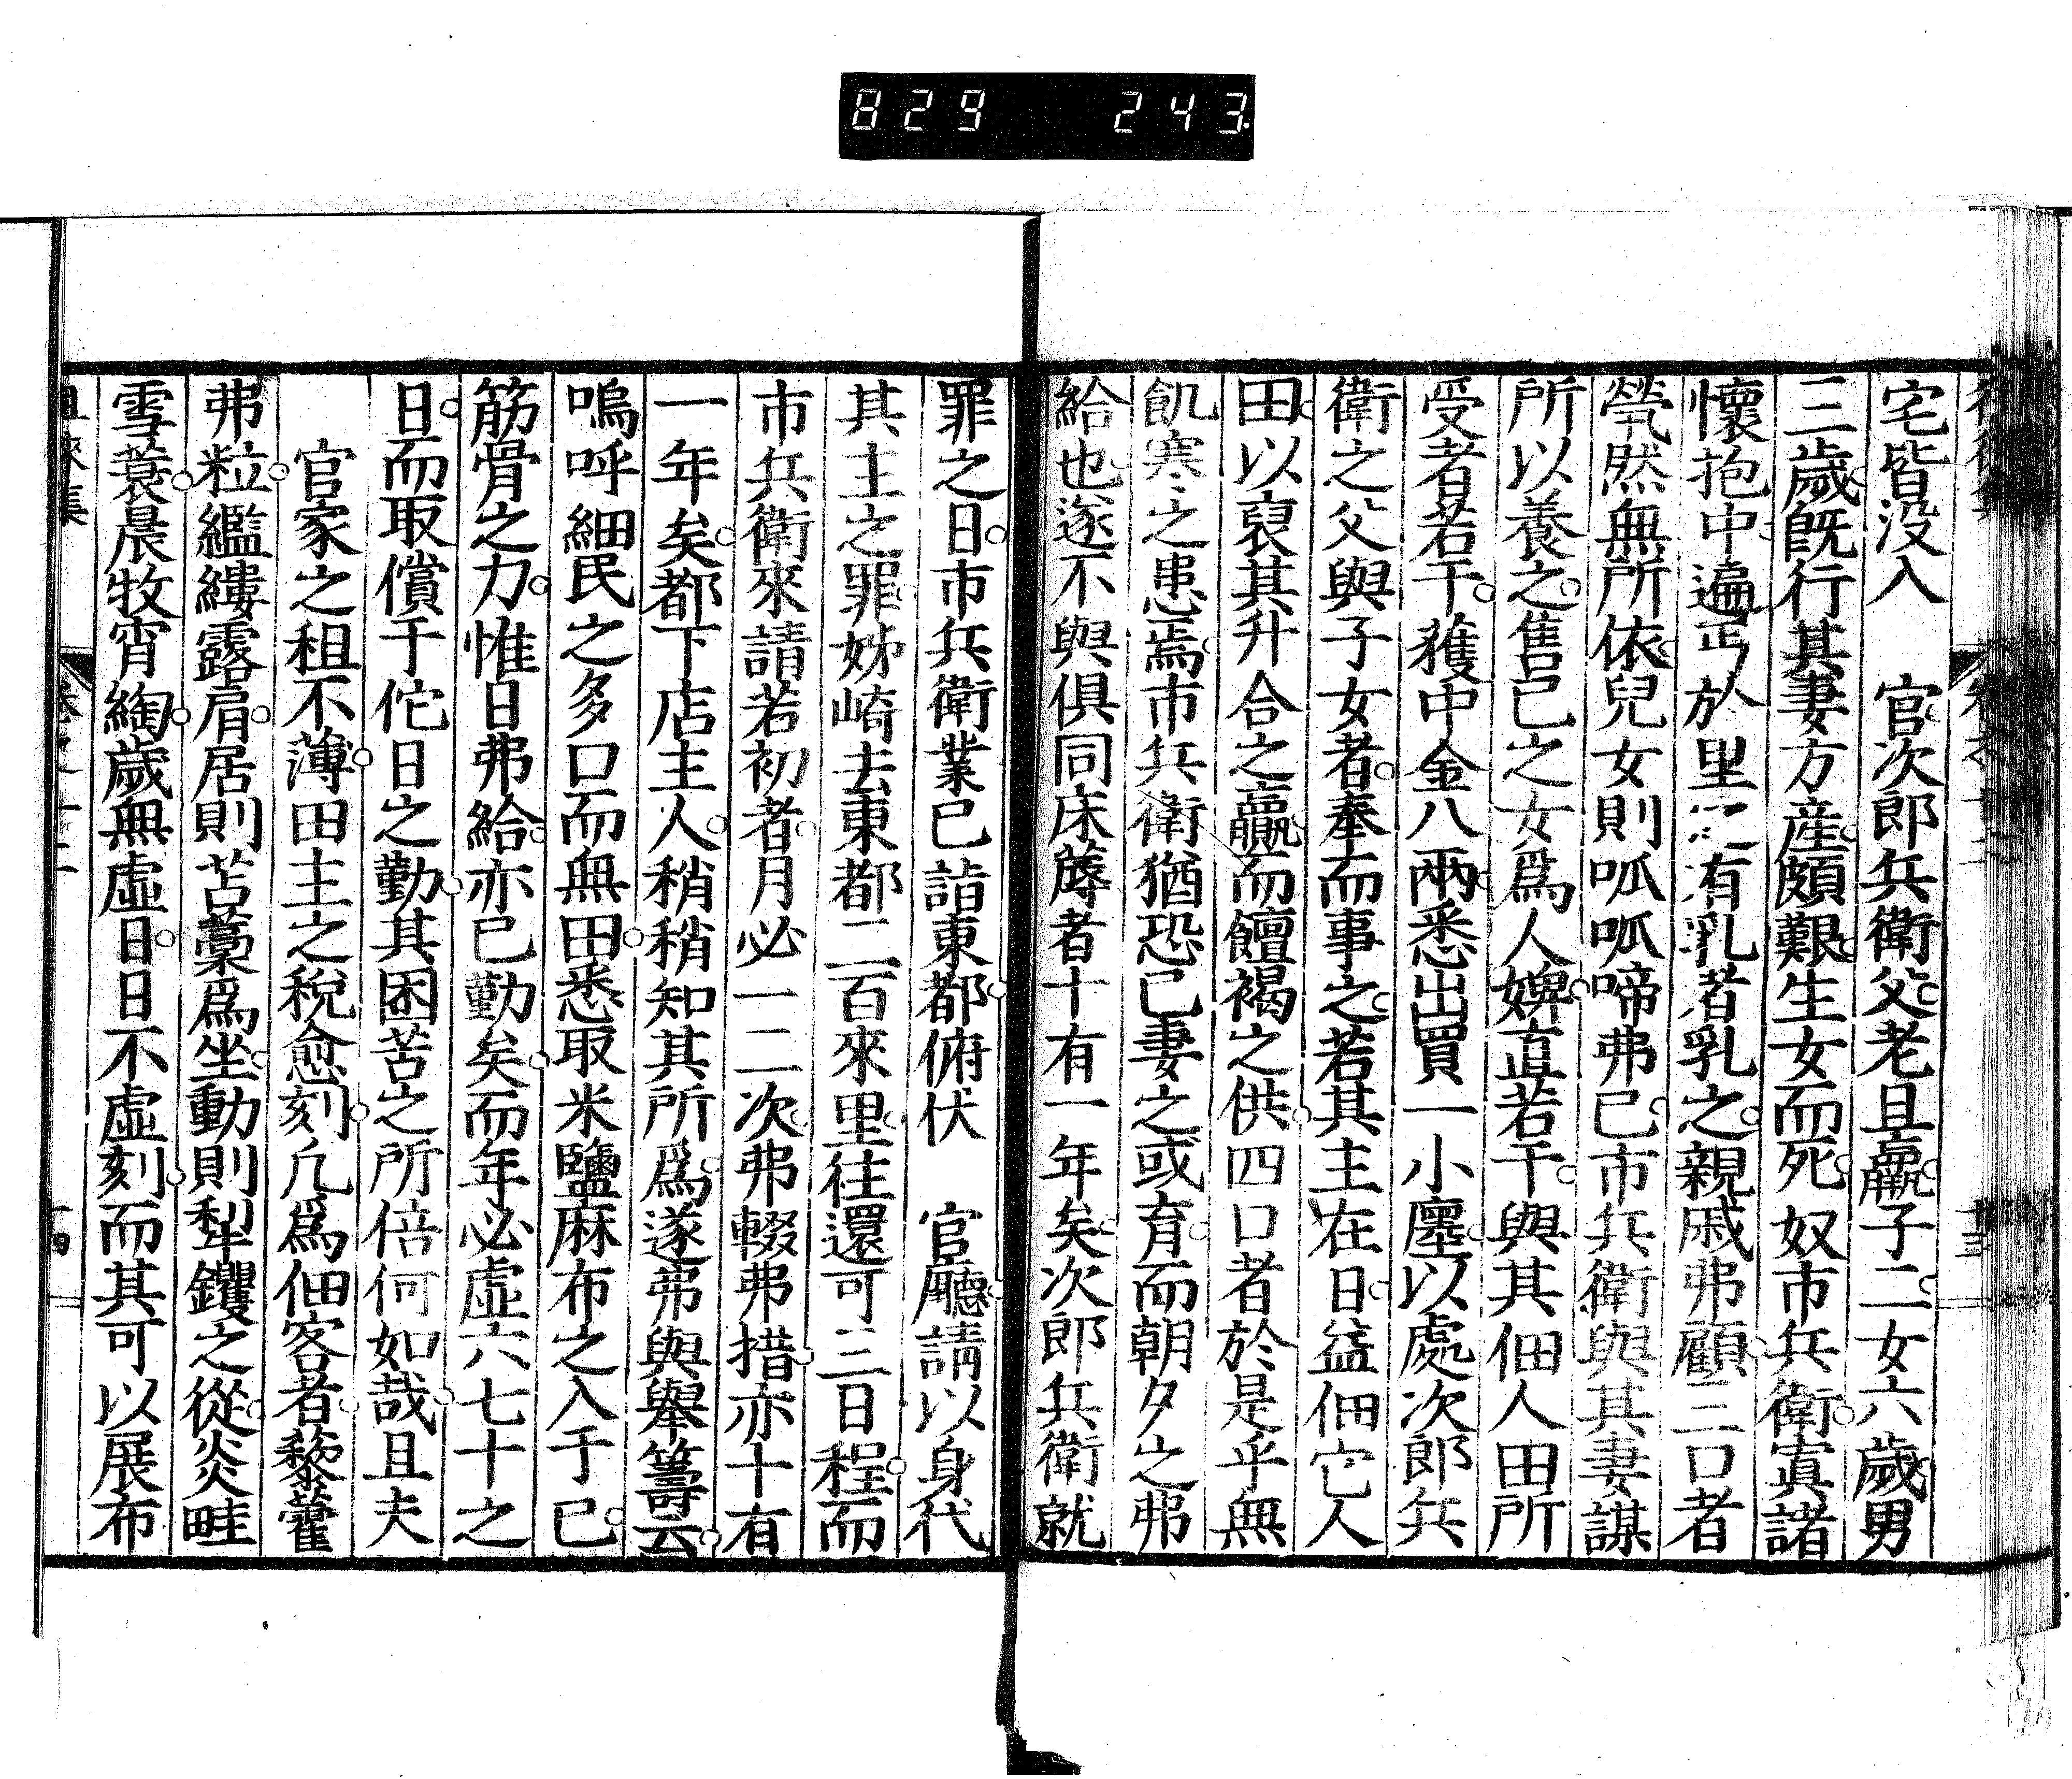 829 243
宅皆没入　官次郎兵衛父老且羸子二女六歲男
三歲旣行其妻方産頗艱生女而死奴市兵衛寘諸
懷抱中遍丐於里有乳者乳之親戚弗顧三口者
煢然無所依兒女則呱呱啼弗已市兵衛與其妻謀
所以養之售己之女爲人婢直若干與其佃人田所
受者若干獲中金八兩悉出買一小廛以處次郎兵
衛之父與子女者奉而事之若其主在日益佃它人
田以裒其升合之贏而饘褐之供四口者於是乎無
飢寒之患焉市兵衛猶恐己妻之或育而朝夕之弗
給也遂不與俱同床蓐者十有一年矣次郎兵衛就
罪之日市兵衛業已詣東都俯伏　官廳請以身代
其主之罪姊崎去東都二百來里往還可三日程而
市兵衛來請若初者月必一二次弗輟弗措亦十有
一年矣都下店主人稍稍知其所爲遂弗與舉籌云
嗚呼細民之多口而無田悉取米鹽麻布之入于己
筋骨之力惟日弗給亦已勤矣而年必虛六七十之
日而取償于佗日之勤其困苦之所倍何如哉且夫
官家之租不薄田主之稅愈刻凢爲佃客者藜藿
弗粒繿縷露肩居則苫藁爲坐動則犁钁之從炎畦
雪蓑晨牧宵綯歲無虛日日不虛刻而其可以展布